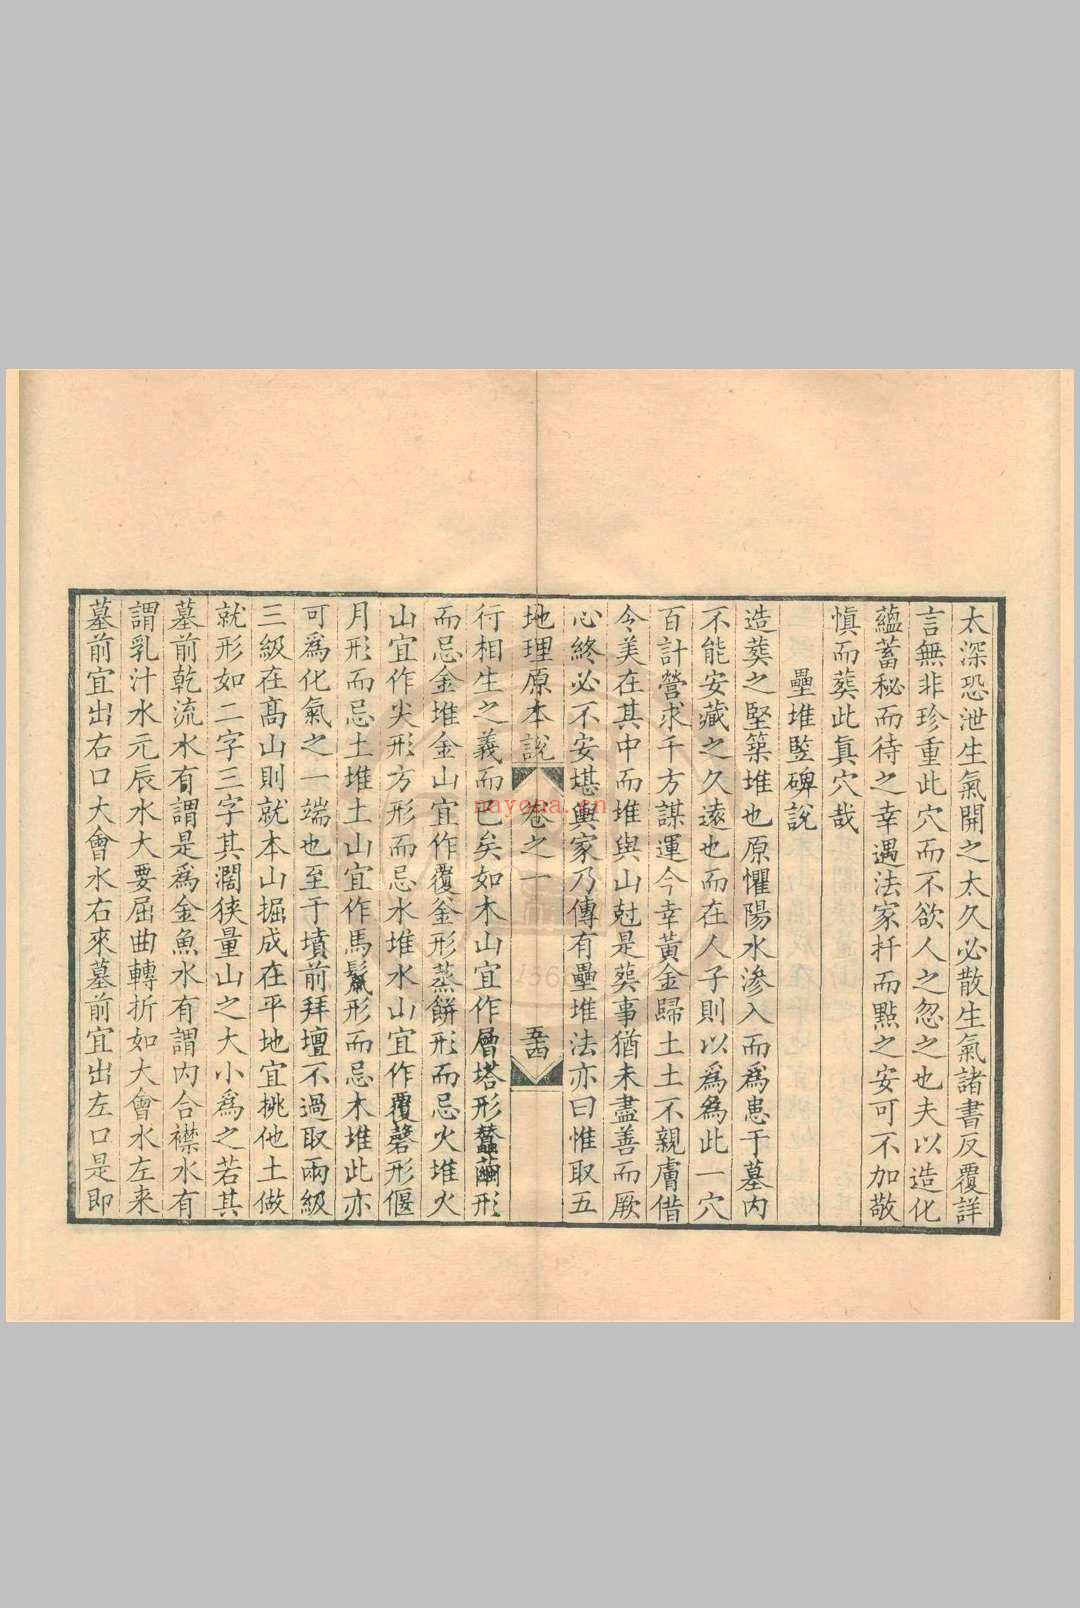 太深恐泄生氣開之太久必散生氣諸書反覆詳
言無非珍重此穴而不欲人之忽之也夫以造化
蘊蓄秘而待之幸遇法家扦而點之安可不加敬
慎而葬此真穴哉
壘堆竪碑說
造葬之堅築堆也原懼陽水滲入而爲患于墓内
不能安藏之久遠也而在人子則以爲為此一穴
百計營求千方謀運今幸黃金歸土土不親膚借
今美在其中而堆與山尅是葬事猶未盡善而厥
心終必不安堪輿家乃傳有壘堆法亦曰惟取五
地理原本說 卷之一 五四
行相生之義而已矣如木山宜作層塔形蠶繭形
而忌金堆金山宜作覆釜形蒸餅形而忌火堆火
山宜作尖形方形而忌水堆水山宜作覆磬形偃
月形而忌土堆土山宜作馬鬛形而忌木堆此亦
可爲化氣之一端也至于墳前拜壇不過取兩級
三級在高山則就本山掘成在平地宜挑他土做
就形如二字三字其濶狹量山之大小爲之若其
墓前乾流水有謂是爲金魚水有謂内合襟水有
謂乳汁水元辰水大要屈曲轉折如大會水左来
墓前宜出右口大會水右來墓前宜出左口是即
nayona.cn